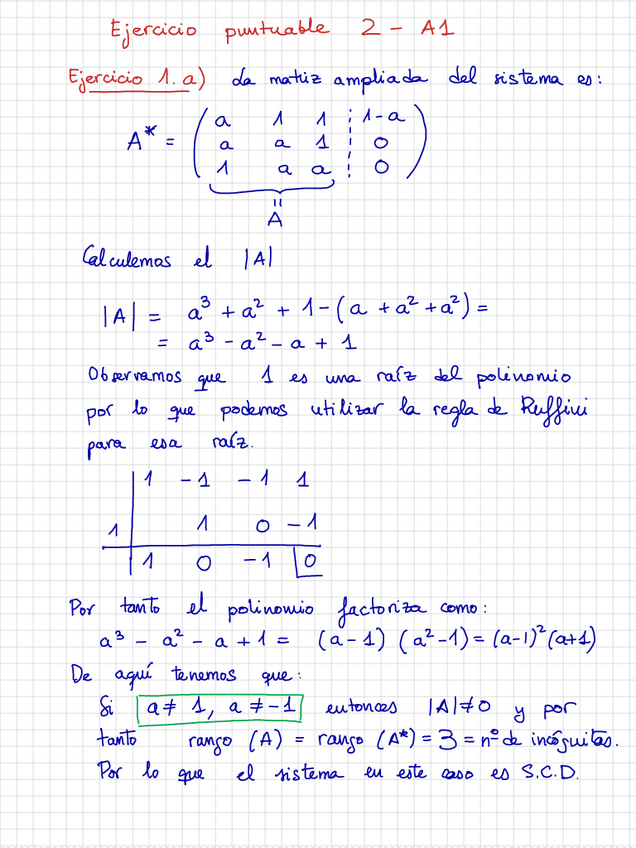 Ejercicio puntuable 2 - A1
Ejercicio 1. a) La matriz ampliada del sistema es:
A* = ( a 1 1 ¦ 1-a
a a 1 ¦ 0
1 a a ¦ 0 )
=
A
Calculemos el |A|
|A| = a³ + a² + 1 - (a + a² + a²) =
= a³ - a² - a + 1
Observamos que 1 es una raíz del polinomio
por lo que podemos utilizar la regla de Ruffini
para esa raíz.
1 -1 -1 1
1 1 0 -1
1 0 -1 0
Por tanto el polinomio factoriza como:
a³ - a² - a + 1 = (a-1) (a²-1) = (a-1)²(a+1)
De aquí tenemos que:
Si a ≠ 1, a ≠ -1 entonces |A| ≠ 0 y por
tanto rango (A) = rango (A*) = 3 = nº de incógnitas.
Por lo que el sistema en este caso es S.C.D.